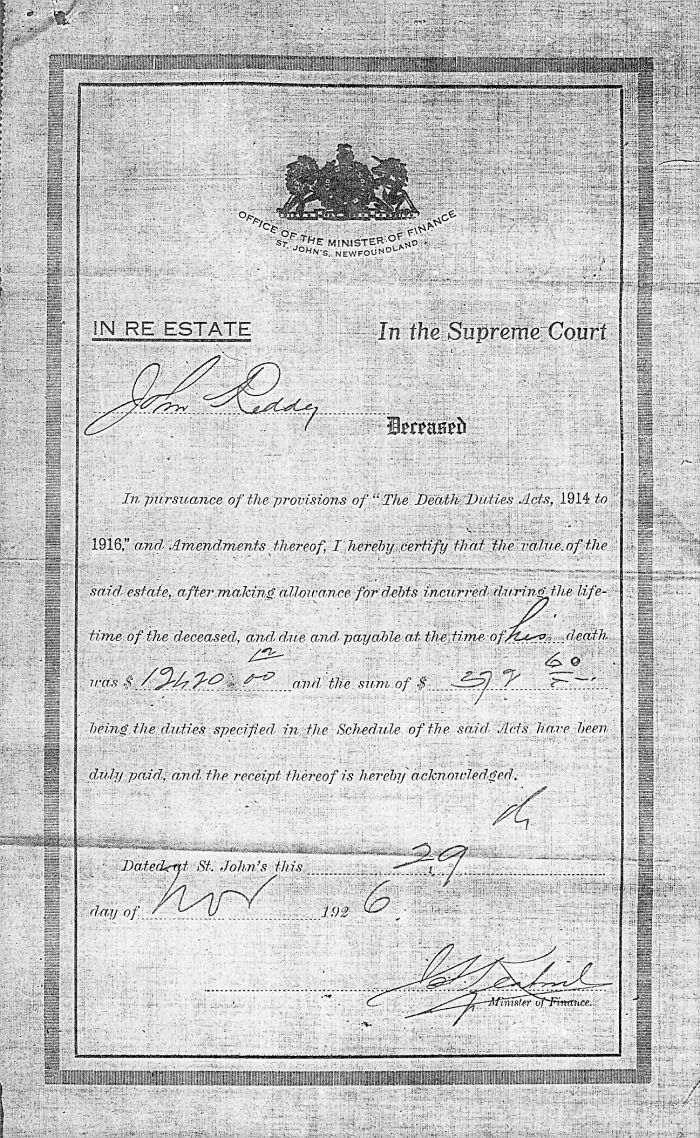 OFFICE OF THE MINISTER OF FINANCE
ST. JOHN'S, NEWFOUNDLAND
IN RE ESTATE In the Supreme Court
John Reddy
Deceased
In pursuance of the provisions of "The Death Duties Acts, 1914 to
1916," and Amendments thereof, I hereby certify that the value of the
said estate, after making allowance for debts incurred during the life-
time of the deceased, and due and payable at the time of his death
was $ and the sum of $
being the duties specified in the Schedule of the said Acts have been
duly paid, and the receipt thereof is hereby acknowledged.
Dated at St. John's this 29
day of Nov 1926
Minister of Finance.